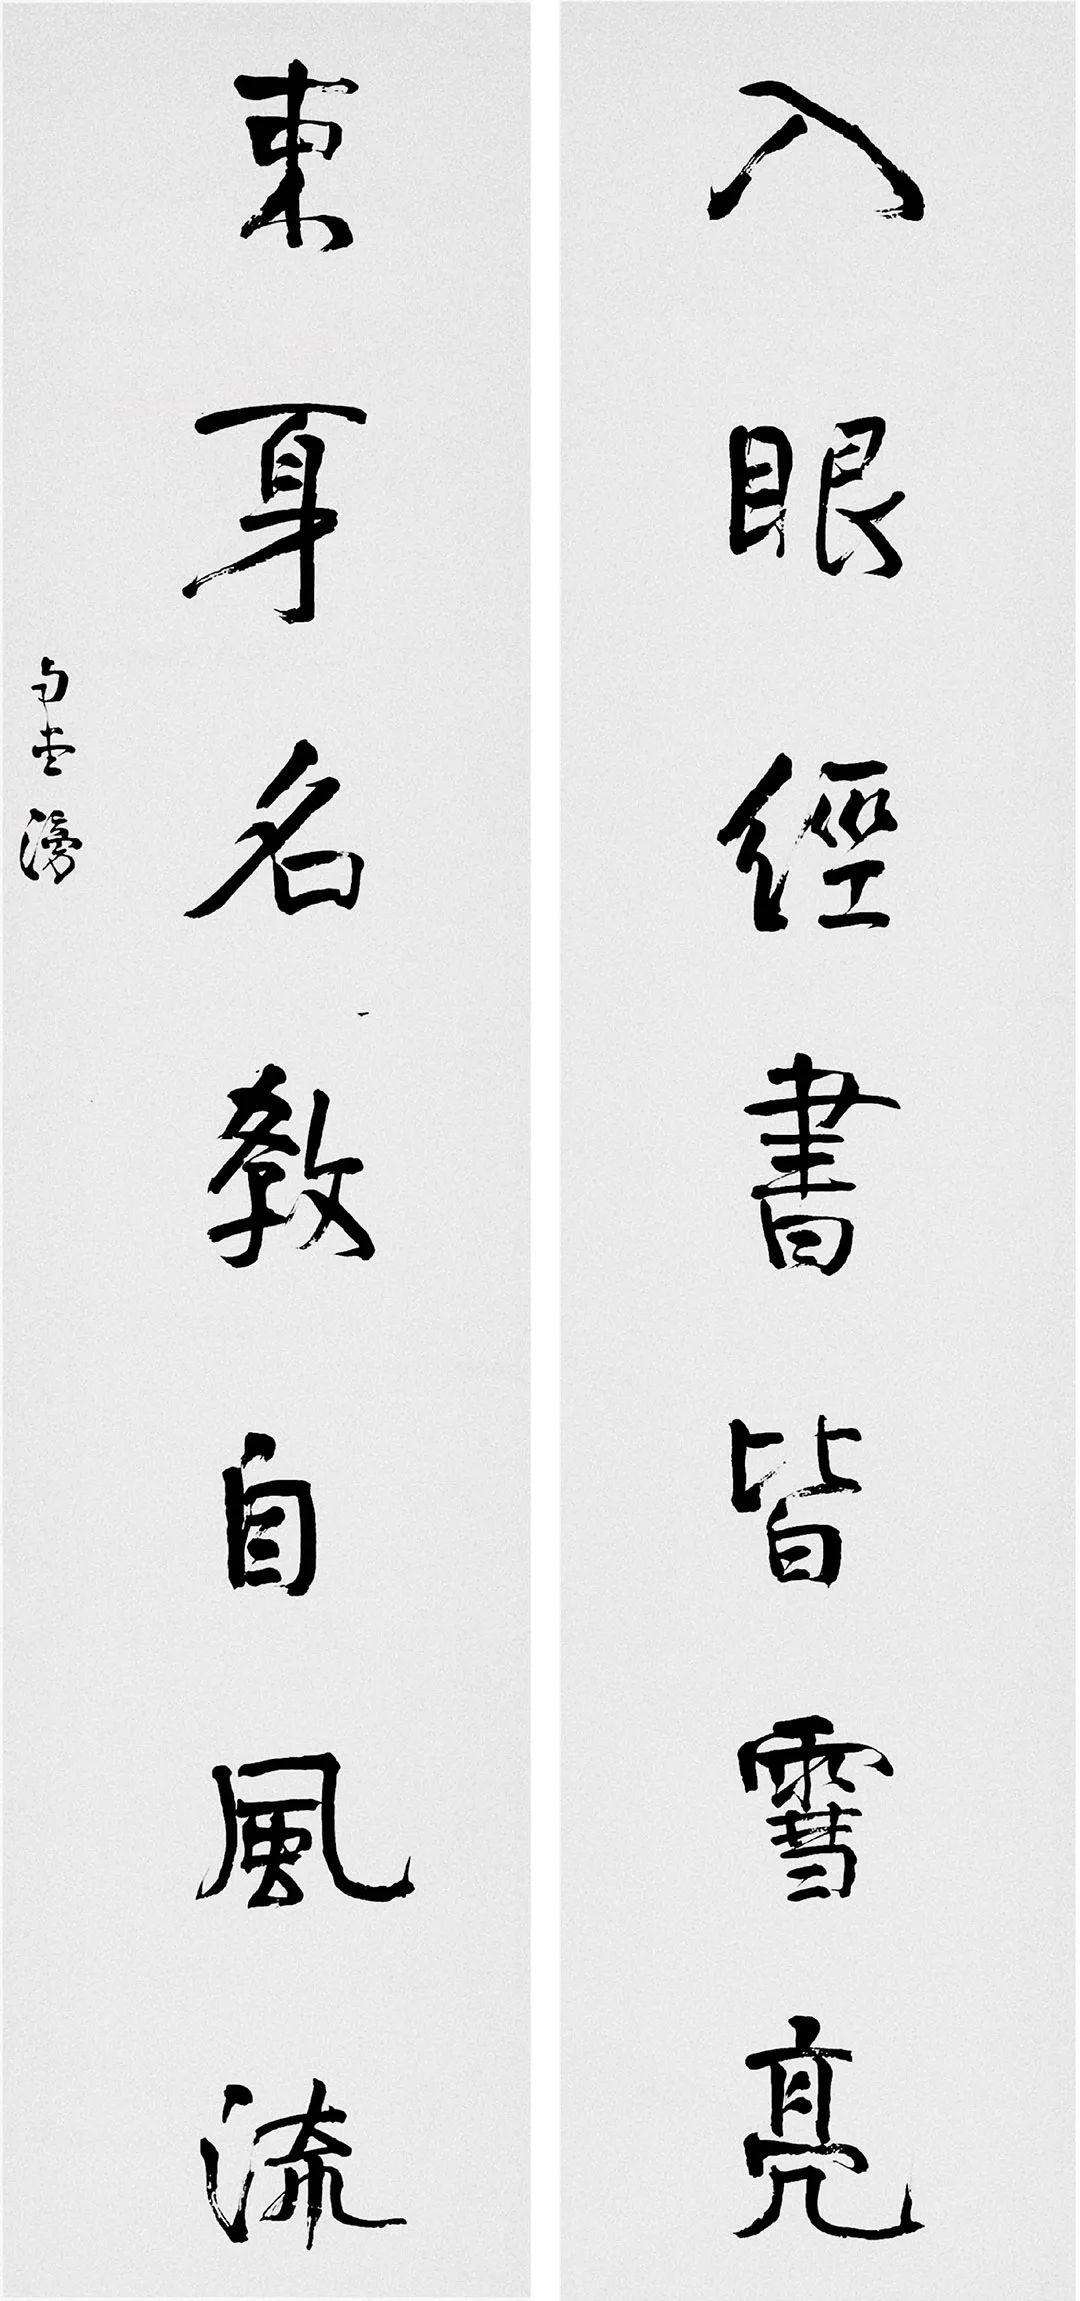 入眼經書皆雪亮
束身名教自風流